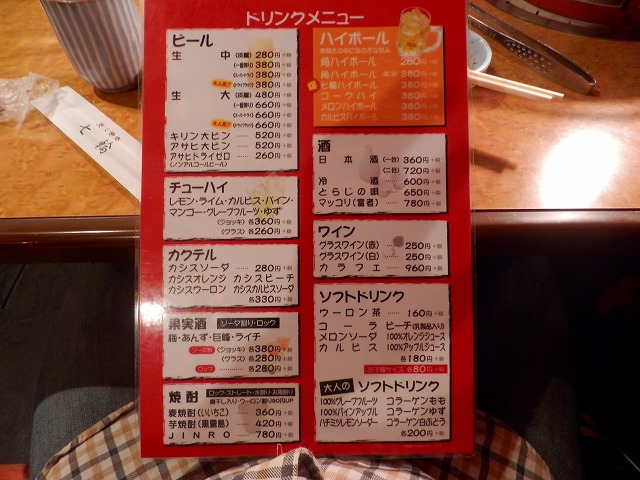 ドリンクメニュー
ビール
生 中 (淡麗) 280円
(一番搾り) 380円
(スーパードライ) 380円
大人選び (ドライブラック) 380円
生 大 (淡麗) 480円
(一番搾り) 660円
(スーパードライ) 660円
大人選び (ドライブラック) 660円
キリン大ビン …… 520円
アサヒ大ビン …… 520円
アサヒドライゼロ 260円
(ノンアルコールビール)
チューハイ
レモン・ライム・カルピス・パイン・
マンゴー・グレープフルーツ・ゆず
(ジョッキ) 各360円
(グラス) 各260円
カクテル
カシスソーダ …… 280円
カシスオレンジ カシスピーチ
カシスウーロン カシスカルピスソーダ
各330円
果実酒 ソーダ割り・ロック
梅・あんず・巨峰・ライチ
ソーダ割 (ジョッキ) 各380円
(グラス) 各280円
ロック 各280円
焼酎 ロック・ストレート・水割り・お湯割り
梅干し入り・ウーロン割り80円UP
麦焼酎(いいちこ) 360円
芋焼酎(黒霧島) 420円
JINRO …… 780円
ハイボール
角ハイボール 280円
角ハイボール 380円
ハイボール 380円
コークハイ 380円
メロンハイボール 380円
カルピスハイボール 380円
酒
日本酒 (一合) 360円
(二合) 720円
冷酒 …… 600円
とらじの唄 …… 650円
マッコリ(富者) …… 780円
ワイン
グラスワイン(赤) …… 250円
グラスワイン(白) …… 250円
カラフェ …… 960円
ソフトドリンク
ウーロン茶 …… 160円
コーラ ピーチ(乳製品入り)
メロンソーダ 100%オレンジジュース
カルピス 100%アップルジュース
各180円
お子様サイズ 各80円
大人の ソフトドリンク
100%グレープフルーツ コラーゲンもも
100%パインアップル コラーゲンゆず
ハチミツレモンソーダー コラーゲン白ぶどう
各200円